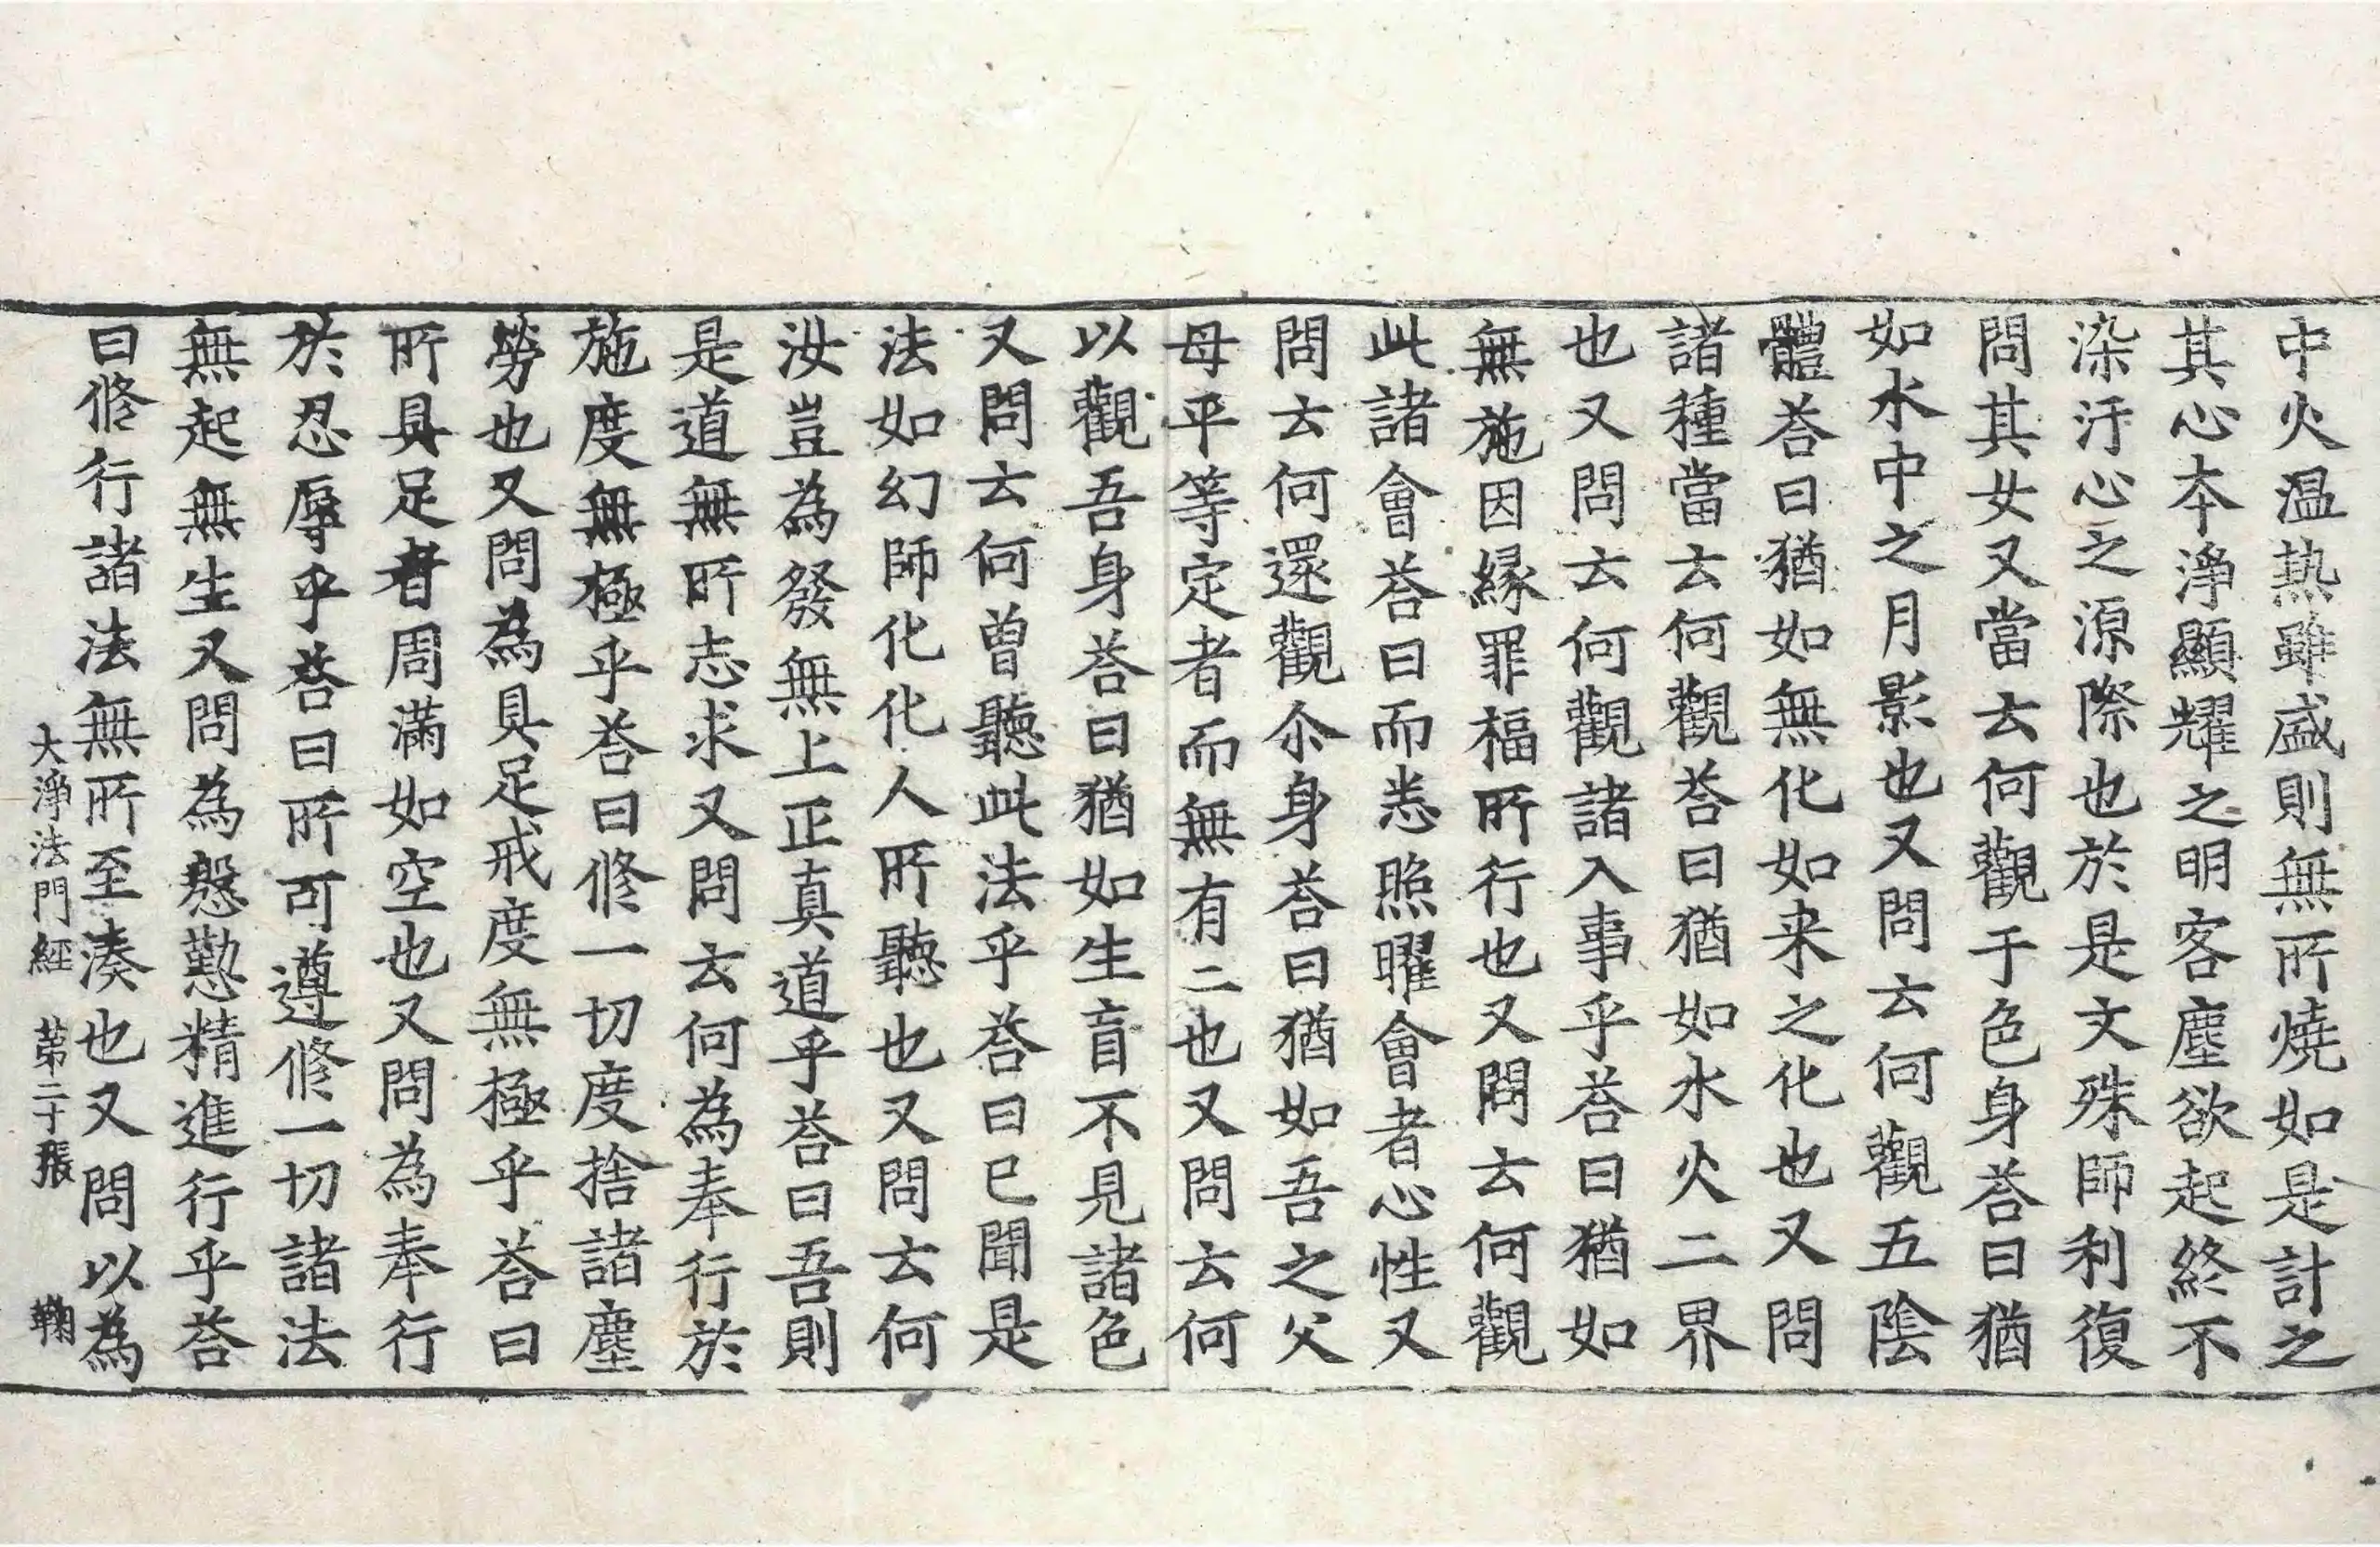 中火温热雖盛則無所燒如是計之
其心本淨顯耀之明客塵欲起終不
染汙心之源際也於是文殊師利復
問其女又當云何觀于色身荅曰猶
如水中之月影也又問云何觀五陰
體荅曰猶如無化如来之化也又問
諸種當云何觀荅曰猶如水火二界
也又問云何觀諸入事乎荅曰猶如
無施因縁罪福所行也又問云何觀
此諸會荅曰而悉照曜會者心性又
問云何還觀尒身荅曰猶如吾之父
母平等定者而無有二也又問云何
以觀吾身荅曰猶如生盲不見諸色
又問云何曾聽此法乎荅曰已聞是
法如幻師化化人所聽也又問云何
汝豈為發無上正真道乎荅曰吾則
是道無所志求又問云何為奉行於
施度無極乎荅曰修一切度捨諸塵
勞也又問為具足戒度無極乎荅曰
所具足者周滿如空也又問為奉行
於忍辱乎荅曰所可遵修一切諸法
無起無生又問為慇懃精進行乎荅
曰修行諸法無所至湊也又問以為
大淨法門經 第二十張 鞠